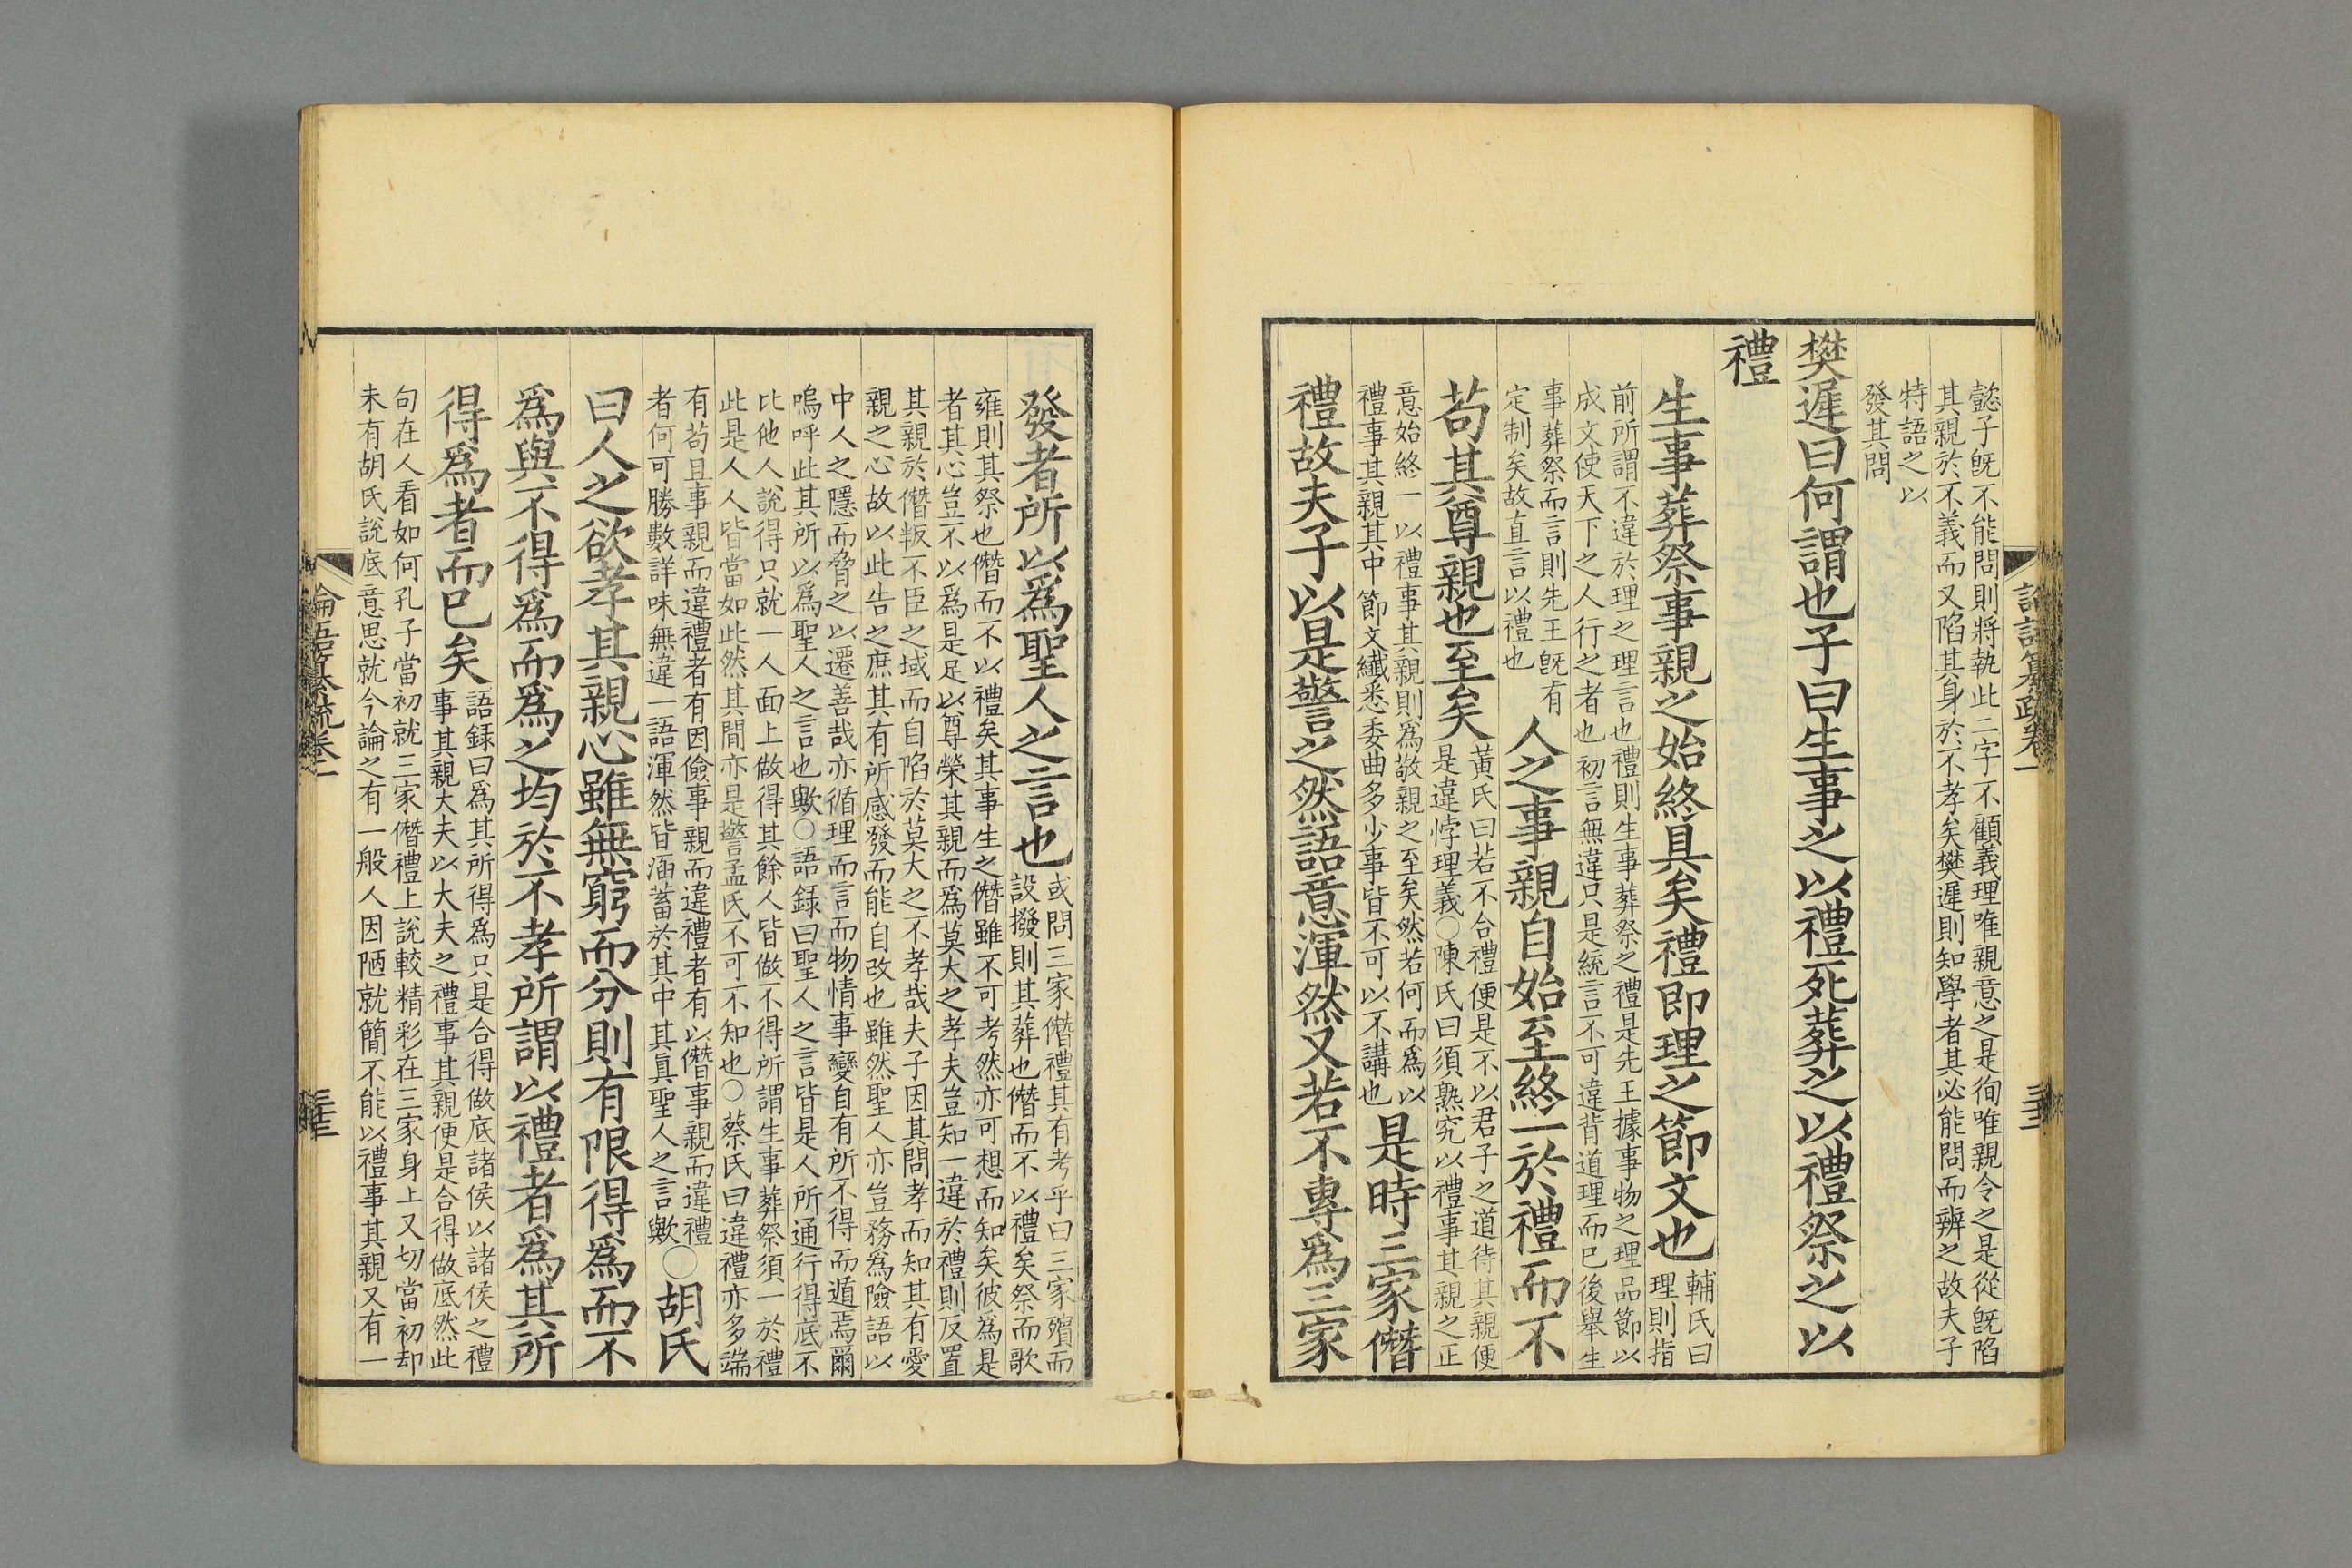 懿子旣不能問則將執此二字不顧義理唯親意之是徇唯親令之是從旣陷
其親於不義而又陷其身於不孝矣樊遲則知學者其必能問而辨之故夫子
特語之以
發其問
樊遲曰何謂也子曰生事之以禮死葬之以禮祭之以
禮
生事葬祭事親之始終具矣禮即理之節文也
輔氏曰
理則指
前所謂不違於理之理言也禮則生事葬祭之禮是先王據事物之理品節以
成文使天下之人行之者也初言無違只是統言不可違背道理而已後舉生
事葬祭而言則先王旣有
定制矣故直言以禮也
人之事親自始至終一於禮而不
苟其尊親也至矣
黃氏曰若不合禮便是不以君子之道待其親便
是違悖理義○陳氏曰須熟究以禮事其親之正
意始終一以禮事其親則爲敬親之至矣然若何而爲以
禮事其親其中節文纎悉委曲多少事皆不可以不講也
是時三家僭
禮故夫子以是警之然語意渾然又若不專爲三家
發者所以爲聖人之言也
或問三家僭禮其有考乎曰三家殯而
設撥則其葬也僭而不以禮矣祭而歌
雍則其祭也僭而不以禮矣其事生之僭雖不可考然亦可想而知矣彼爲是
者其心豈不以爲是足以尊榮其親而爲莫大之孝夫豈知一違於禮則反置
其親於僭叛不臣之域而自陷於莫大之不孝哉夫子因其問孝而知其有愛
親之心故以此告之庶其有所感發而能自改也雖然聖人亦豈務爲險語以
中人之隱而脅之以遷善哉亦循理而言而物情事變自有所不得而遁焉爾
嗚呼此其所以爲聖人之言也歟○語錄曰聖人之言皆是人所通行得底不
比他人說得只就一人面上做得其餘人皆做不得所謂生事葬祭須一於禮
此是人人皆當如此然其間亦是警孟氏不可不知也○蔡氏曰違禮亦多端
有苟且事親而違禮者有因儉事親而違禮者有以僭事親而違禮
者何可勝數詳味無違一語渾然皆涵蓄於其中其眞聖人之言歟
○胡氏
曰人之欲孝其親心雖無窮而分則有限得爲而不
爲與不得爲而爲之均於不孝所謂以禮者爲其所
得爲者而已矣
語録曰爲其所得爲只是合得做底諸侯以諸侯之禮
事其親大夫以大夫之禮事其親便是合得做底然此
句在人看如何孔子當初就三家僭禮上說較精彩在三家身上又切當初却
未有胡氏說底意思就今論之有一般人因陋就簡不能以禮事其親又有一